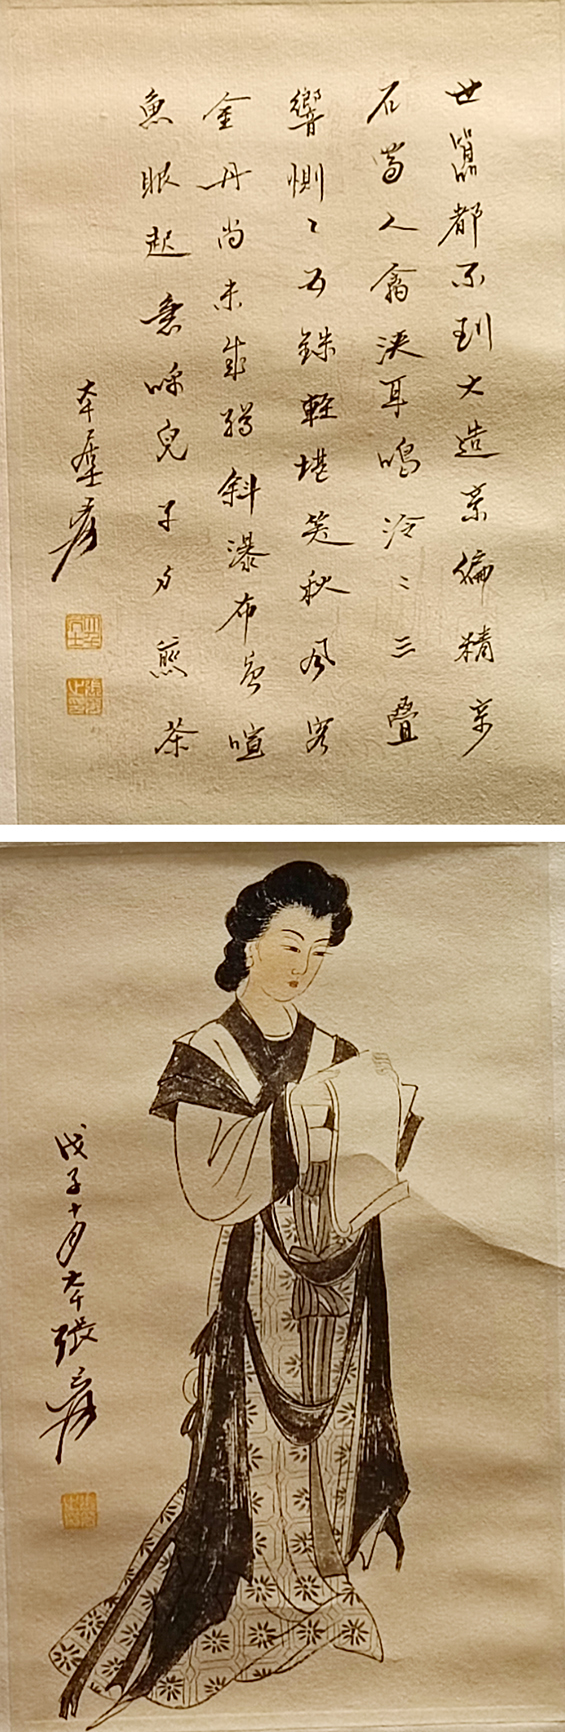 世囂都不到大造偏精
石當人翕耳鳴泠〻三疊
響惻〻五銖輕堪笑秋風客
金丹尚未成斜瀑布喧
魚眼起呼兒子煎茶
大千居士爰
戊子十月大千張爰